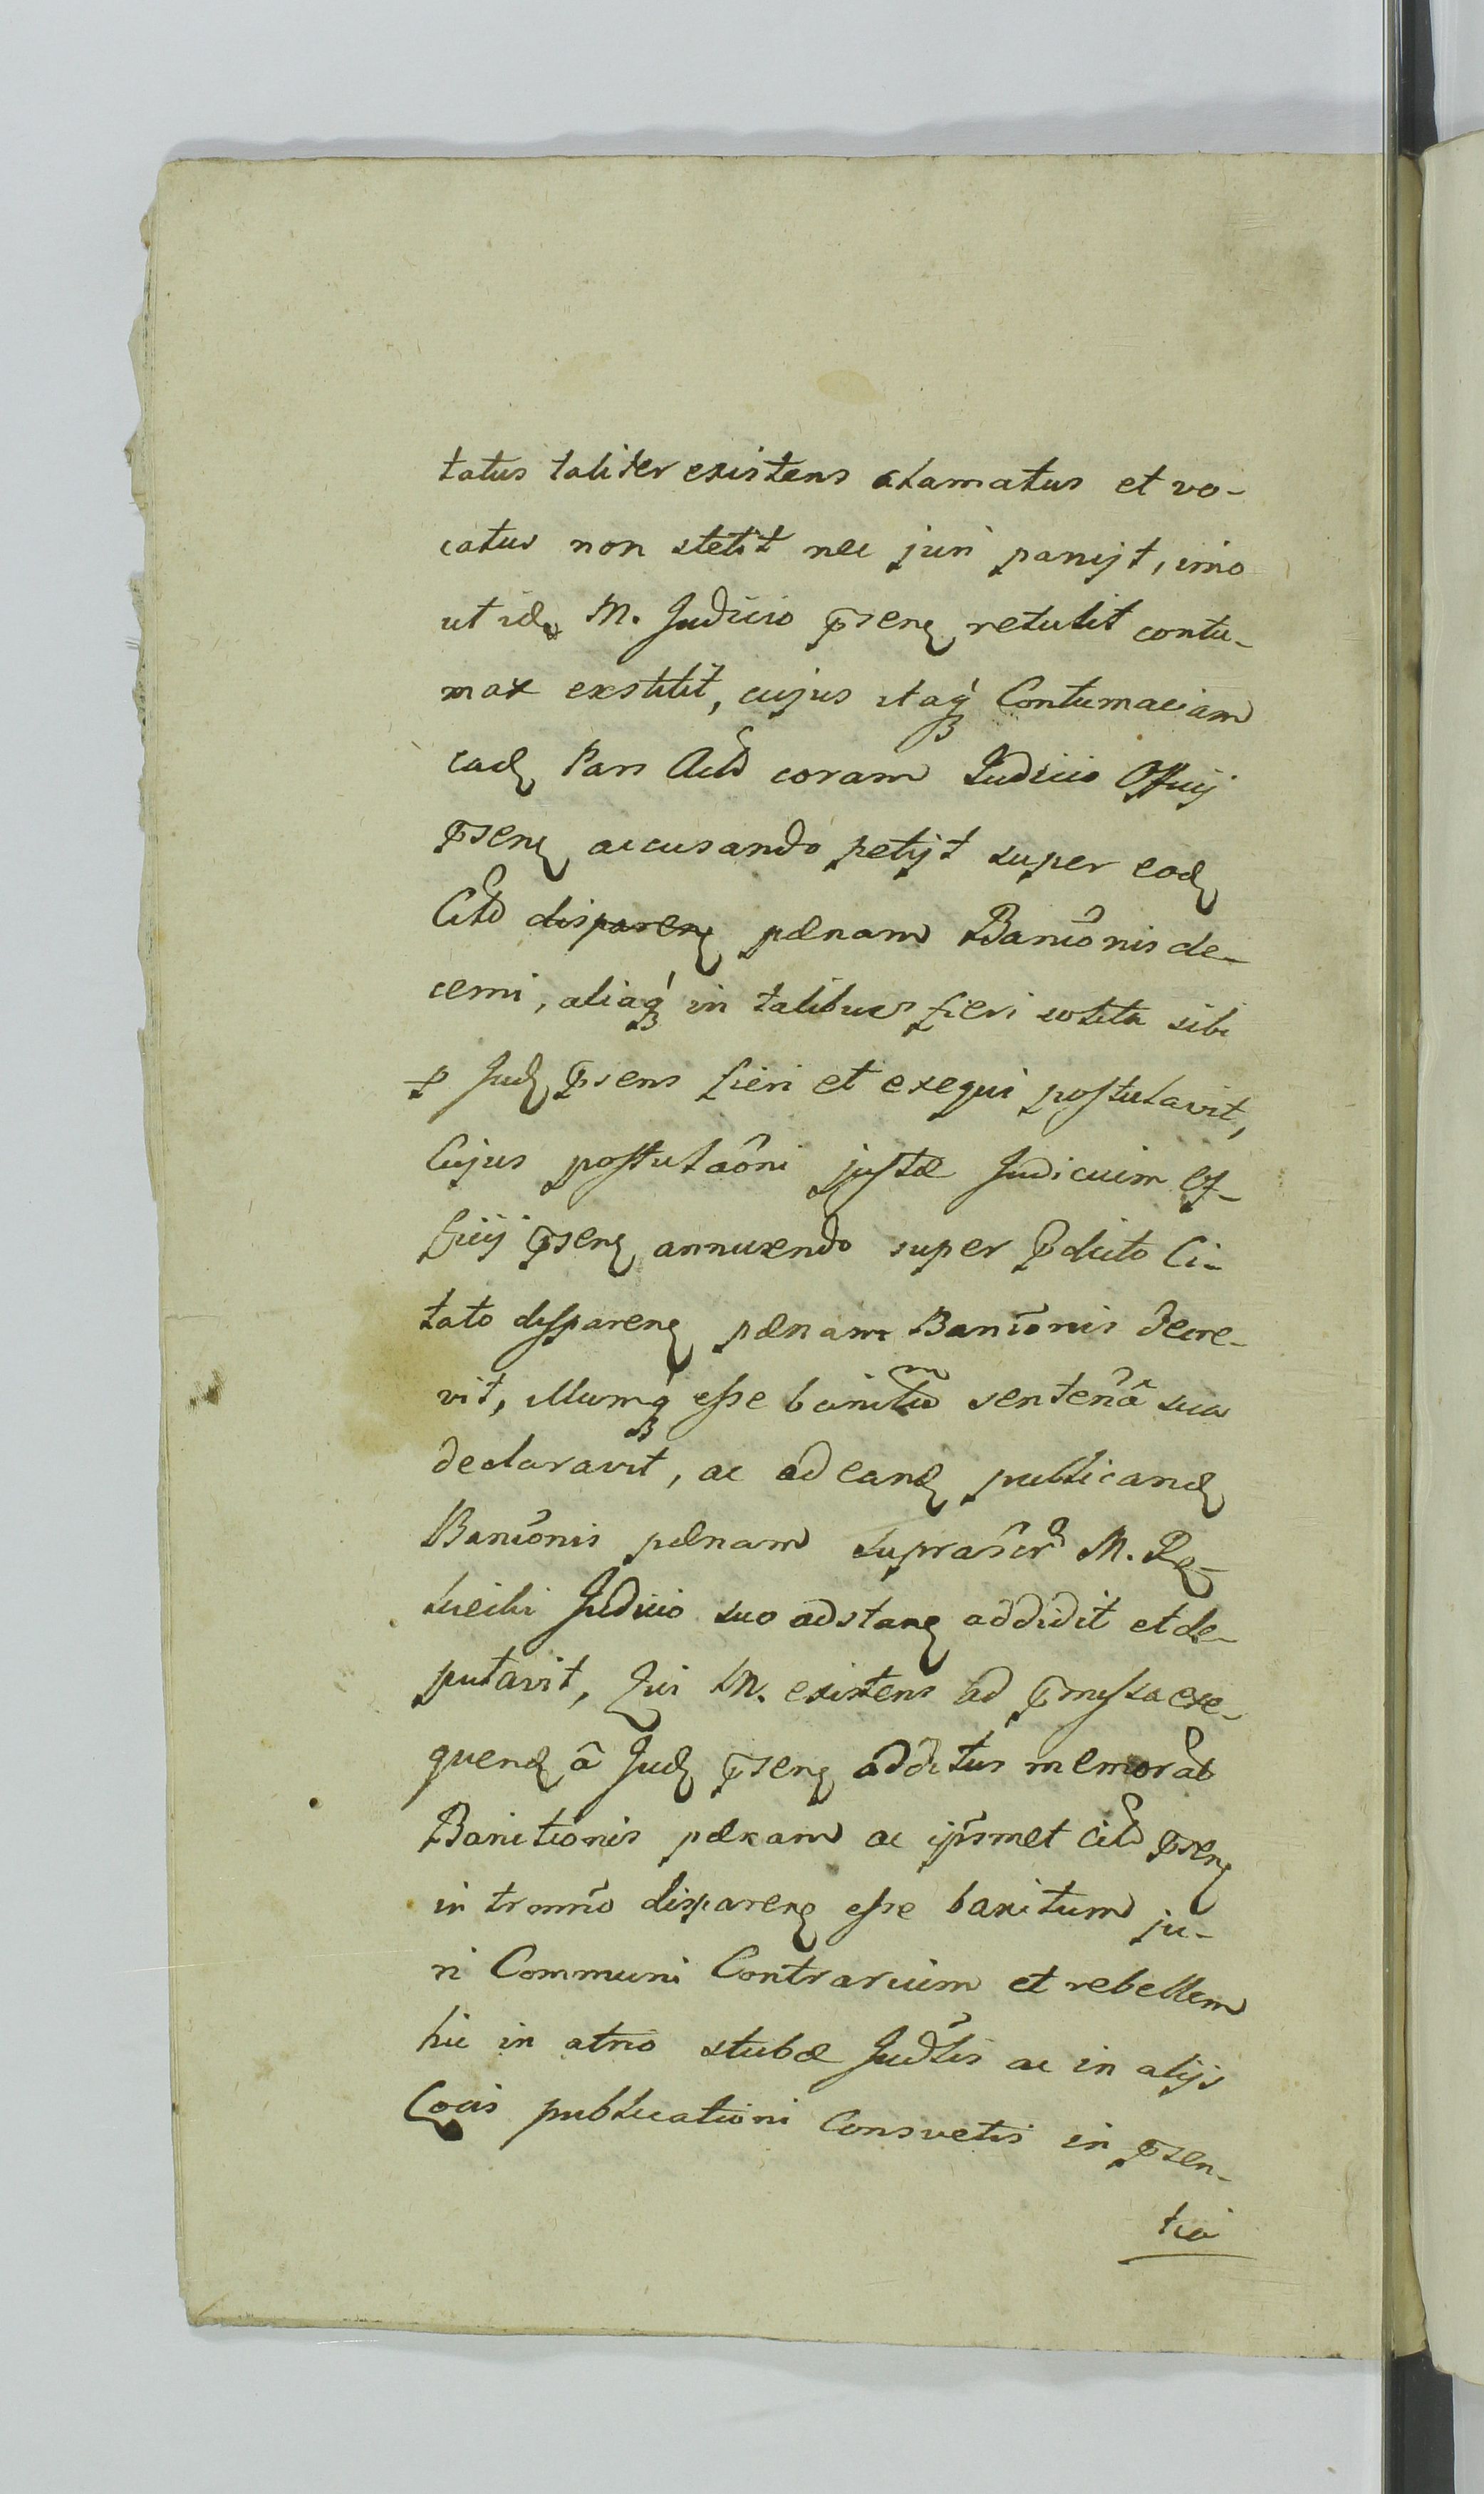 tatus taliter existens clamatus et vo-
catus non stetit nec juri paruit, imo
ut ide M. Judicio pseñ retulit contu-
max exstitit, cujus itaq Contumaciam
ead Pars Act coram Judicio Officij
pseñ accusando petijt super eod
Cito disparen pænam Bañionis de-
cerni, aliaq in talibus fieri solita sibi
p Jud psens fieri et exequi postulavit,
Cujus postulãoni justæ Judicium Of-
ficij pseñ annuendo super pdicto Ci-
tato disparen pænam Bañionis decre-
vit, illumq esse banitũ sentenã sua
declaravit, ac ad eand publicand
Bañionis pænam suprascr M.
Judicio suo adstan addidit et de-
putavit, Qui M. existens ad pmissa exe-
quend â Jud pseñ additus memorat
Banitionis pænam ac ipsmet Citt pseñ
in trmño disparen esse banitum ju-
ri Communi Contrarium et rebellem
hic in atrio stubæ Judlis ac in alijs
Locis publicationi Consvetis in psen-
tia